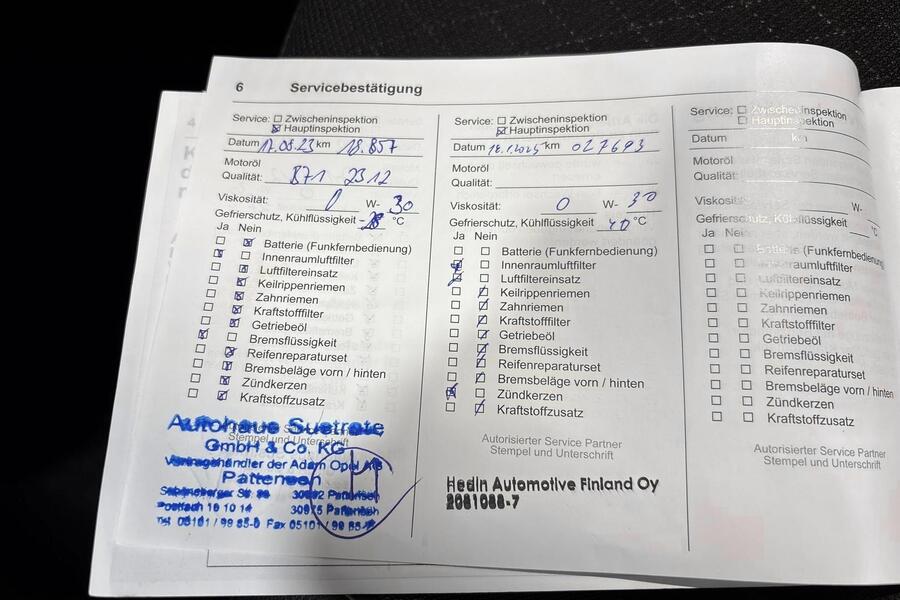 6 Servicebestätigung
Service: Zwischeninspektion
Hauptinspektion
Datum 17.08.23 km 18.857
Motoröl
Qualität: B71 2312
Viskosität: 0 W- 30
Gefrierschutz, Kühlflüssigkeit -28 °C
Ja Nein
Batterie (Funkfernbedienung)
Innenraumluftfilter
Luftfiltereinsatz
Keilrippenriemen
Zahnriemen
Kraftstofffilter
Getriebeöl
Bremsflüssigkeit
Reifenreparaturset
Bremsbeläge vorn / hinten
Zündkerzen
Kraftstoffzusatz
Stempel und Unterschrift
Autohaus Sustrate
GmbH & Co. KG
Vertragshändler der Adam Opel AG
Pattensen
30982 Pattensen
Postfach 10 10 14 30975 Pattensen
Tel. 05101 / 99 85-0 Fax 05101 / 99 85-
Service: Zwischeninspektion
Hauptinspektion
Datum km 027693
Motoröl
Qualität:
Viskosität: 0 W- 30
Gefrierschutz, Kühlflüssigkeit 40 °C
Ja Nein
Batterie (Funkfernbedienung)
Innenraumluftfilter
Luftfiltereinsatz
Keilrippenriemen
Zahnriemen
Kraftstofffilter
Getriebeöl
Bremsflüssigkeit
Reifenreparaturset
Bremsbeläge vorn / hinten
Zündkerzen
Kraftstoffzusatz
Autorisierter Service Partner
Stempel und Unterschrift
Hedin Automotive Finland Oy
2081088-7
Service: Zwischeninspektion
Hauptinspektion
Datum km
Motoröl
Qualität:
Viskosität: W-
Gefrierschutz, Kühlflüssigkeit °C
Ja Nein
Batterie (Funkfernbedienung)
Innenraumluftfilter
Luftfiltereinsatz
Keilrippenriemen
Zahnriemen
Kraftstofffilter
Getriebeöl
Bremsflüssigkeit
Reifenreparaturset
Bremsbeläge vorn / hinten
Zündkerzen
Kraftstoffzusatz
Autorisierter Service Partner
Stempel und Unterschrift